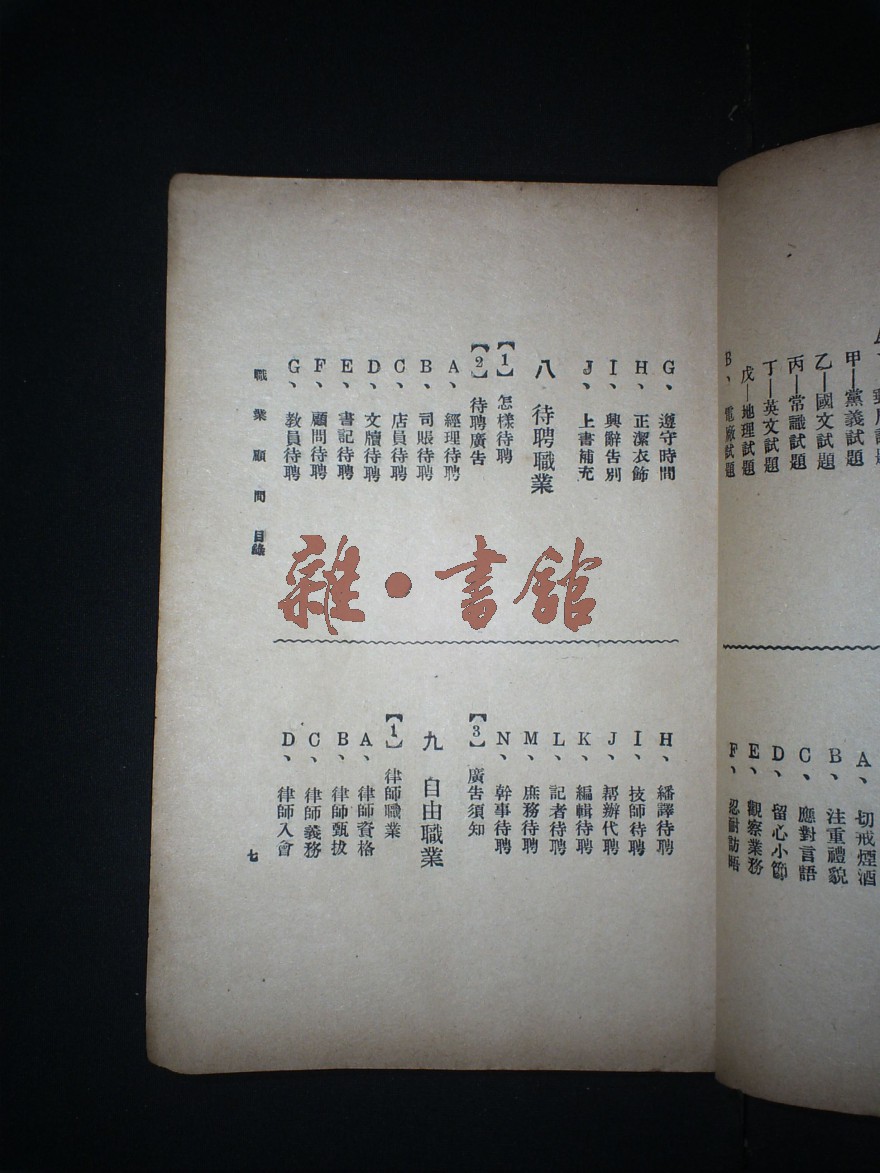 甲—黨義試題
乙—國文試題
丙—常識試題
丁—英文試題
戊—地理試題
B、電廠試題
A、切戒煙酒
B、注重禮貌
C、應對言語
D、留心小節
E、觀察業務
F、忍耐訪晤
G、遵守時間
H、正潔衣飾
I、興辭告別
J、上書補充
八 待聘職業
【1】怎樣待聘
【2】待聘廣告
A、經理待聘
B、司賬待聘
C、店員待聘
D、文牘待聘
E、書記待聘
F、顧問待聘
G、教員待聘
H、繙譯待聘
I、技師待聘
J、幫辦代聘
K、編輯待聘
L、記者待聘
M、庶務待聘
N、幹事待聘
【3】廣告須知
九 自由職業
【1】律師職業
A、律師資格
B、律師甄拔
C、律師義務
D、律師入會
職業顧問 目錄
七
雜·書館